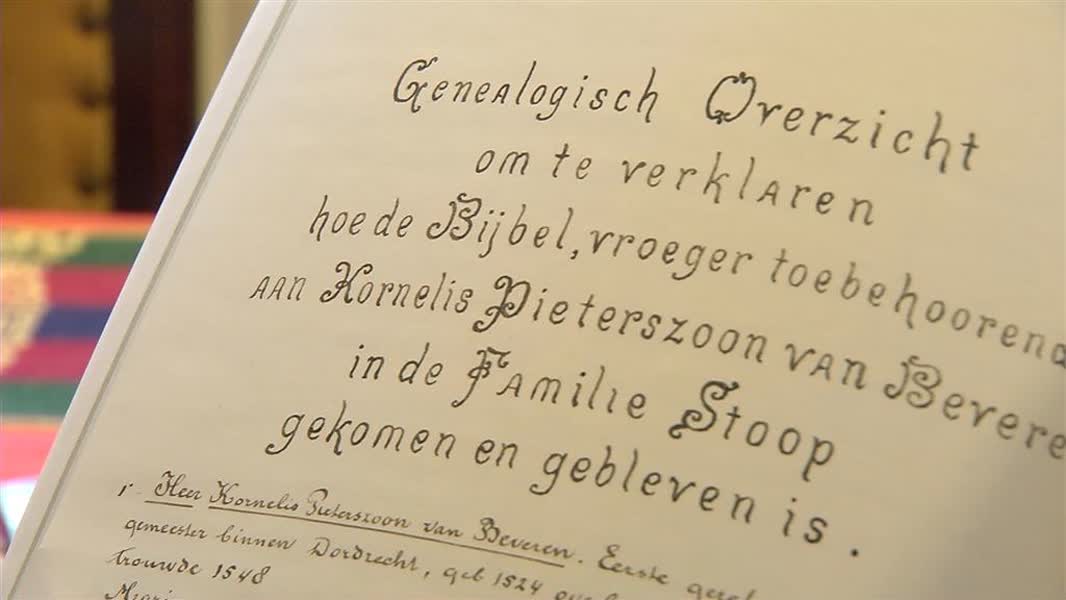 Genealogisch Overzicht
om te verklaren
hoe de Bijbel, vroeger toebehoorend
aan Kornelis Pieterszoon van Bevere
in de Familie Stoop
gekomen en gebleven is.
1. Heer Kornelis Pieterszoon van Beveren. Eerste
gemeester binnen Dordrecht, geb 1524
trouwde 1548